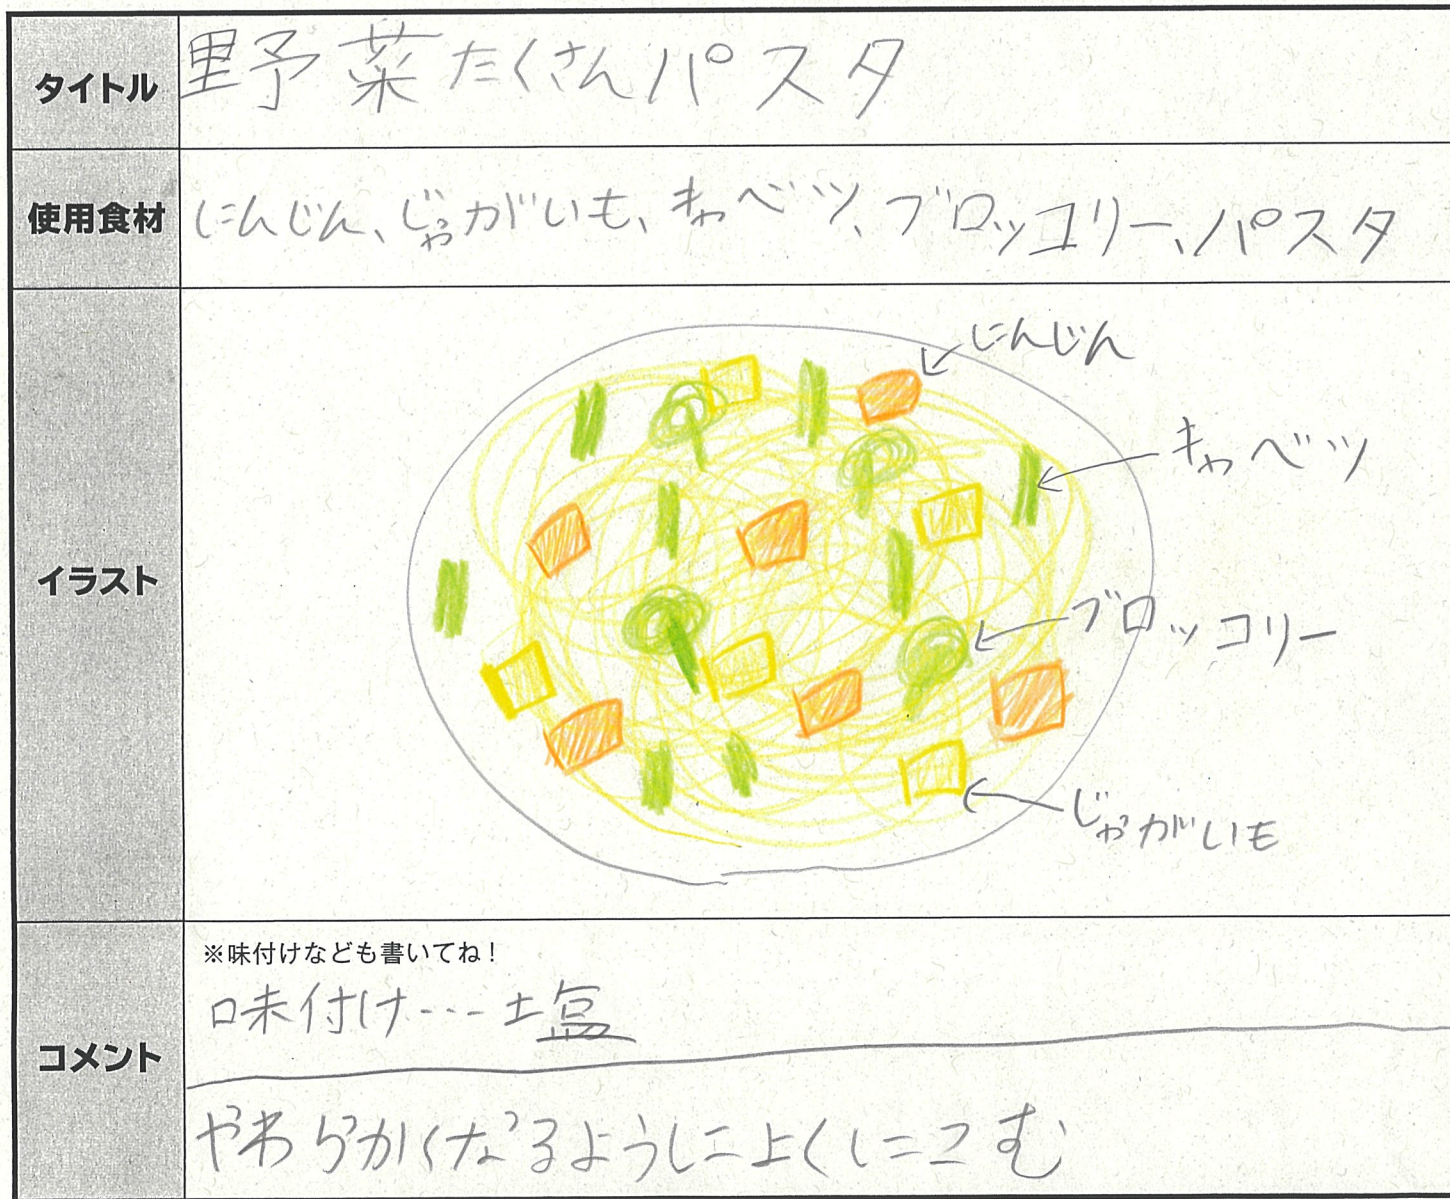 タイトル
野菜たくさんパスタ
使用食材
にんじん、じゃがいも、キャベツ、ブロッコリー、パスタ
イラスト
にんじん
キャベツ
ブロッコリー
じゃがいも
コメント
※味付けなども書いてね！
味付け…塩
やわらかくなるようによくにこむ